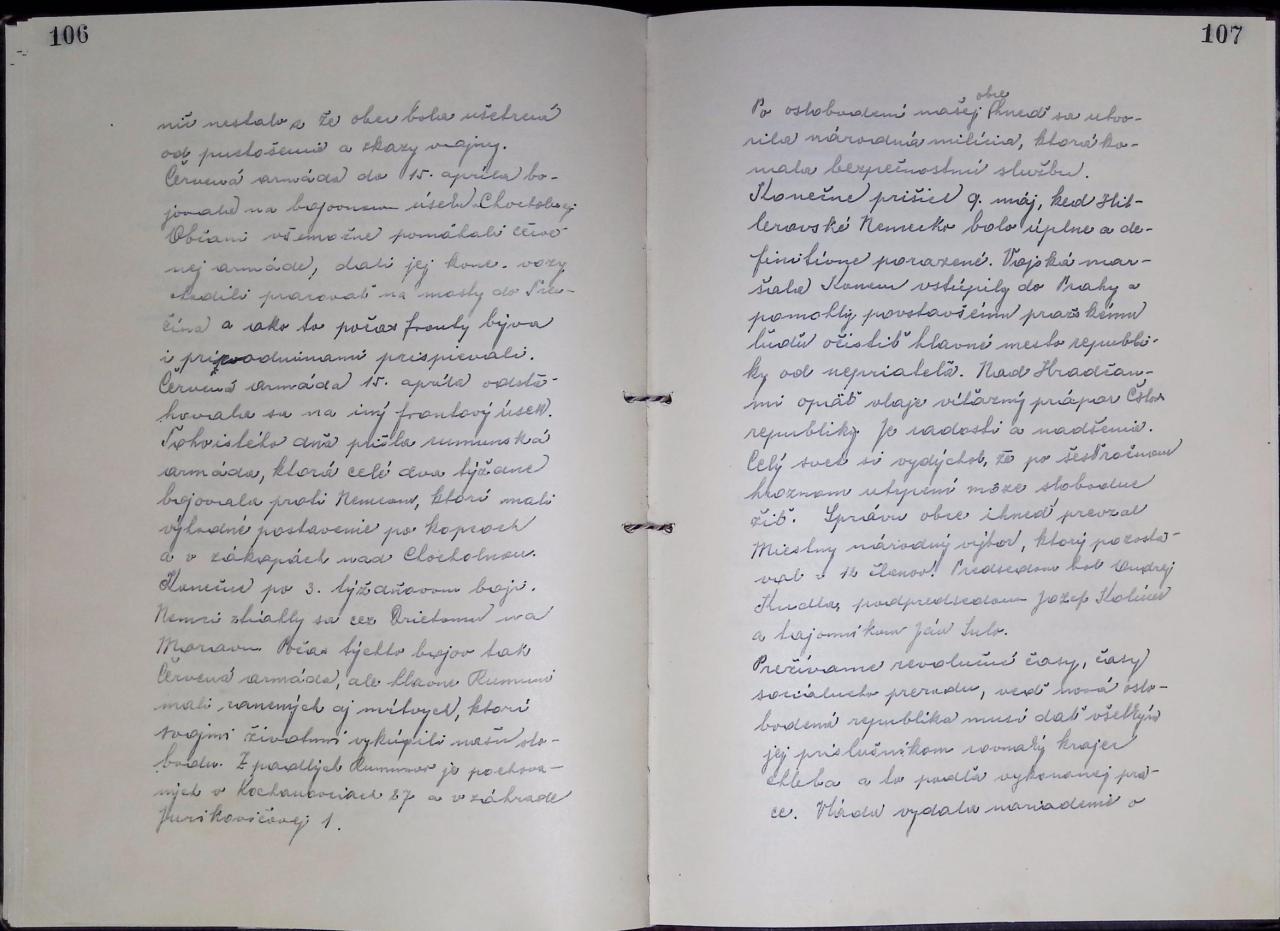 106
nič nestalo a že obec bola ušetrená
od pustošenia a skazy vojny.
Červená armáda do 15. apríla bo-
jovala na bojovnom úseku Chocholnej.
Občania všemožne pomáhali červe-
nej armáde, dali jej kone, vozy,
chodili pracovať na mosty do Tren-
čína a ako to počas fronty býva
i potravinami prispievali.
Červená armáda 15. apríla odsťa-
hovala sa na iný frontový úsek.
Tohoistého dňa prišla rumunská
armáda, ktorá celé dva týždne
bojovala proti Nemcom, ktorí mali
výhodné postavenie po kopcoch
a v zákopách nad Chocholnou.
Konečne po 3. týždňovom boji
Nemci stiahly sa cez Drietomu na
Moravu. Počas týchto bojov tak
Červená armáda, ale hlavne Rumuni
mali ranených aj mŕtvych, ktorí
svojimi životmi vykúpili našu slo-
bodu. Z padlých Rumunov je pochova-
ných v Kochanovciach 27 a v záhrade
Jurikovičovej 1.
107
Po oslobodení našej obce ihneď sa utvo-
rila národná milícia, ktorá ko-
nala bezpečnostnú službu.
Konečne prišiel 9. máj, keď Hit-
lerovské Nemecko bolo úplne a de-
finitívne porazené. Vojská mar-
šala Koneva vstúpily do Prahy a
pomohly povstavšiemu pražskému
ľudu očistiť hlavné mesto republi-
ky od nepriateľa. Nad Hradčan-
mi opäť vlaje víťazný prápor Čslov.
republiky. Je radosti a nadšenia.
Celý svet si vydýchol, že po šesťročnom
hroznom utrpení môže slobodne
žiť. Správu obce ihneď prevzal
Miestny národný výbor, ktorý pozostá-
val z 12 členov. Predsedom bol Ondrej
Kudla, podpredsedom Jozef
a tajomníkom Ján
Prežívame revolučné časy, časy
sociálneho prerodu, veď nová oslo-
bodená republika musí dať všetkým
jej príslušníkom rovnaký krajec
chleba a to podľa vykonanej prá-
ce. Vláda vydala nariadenie o